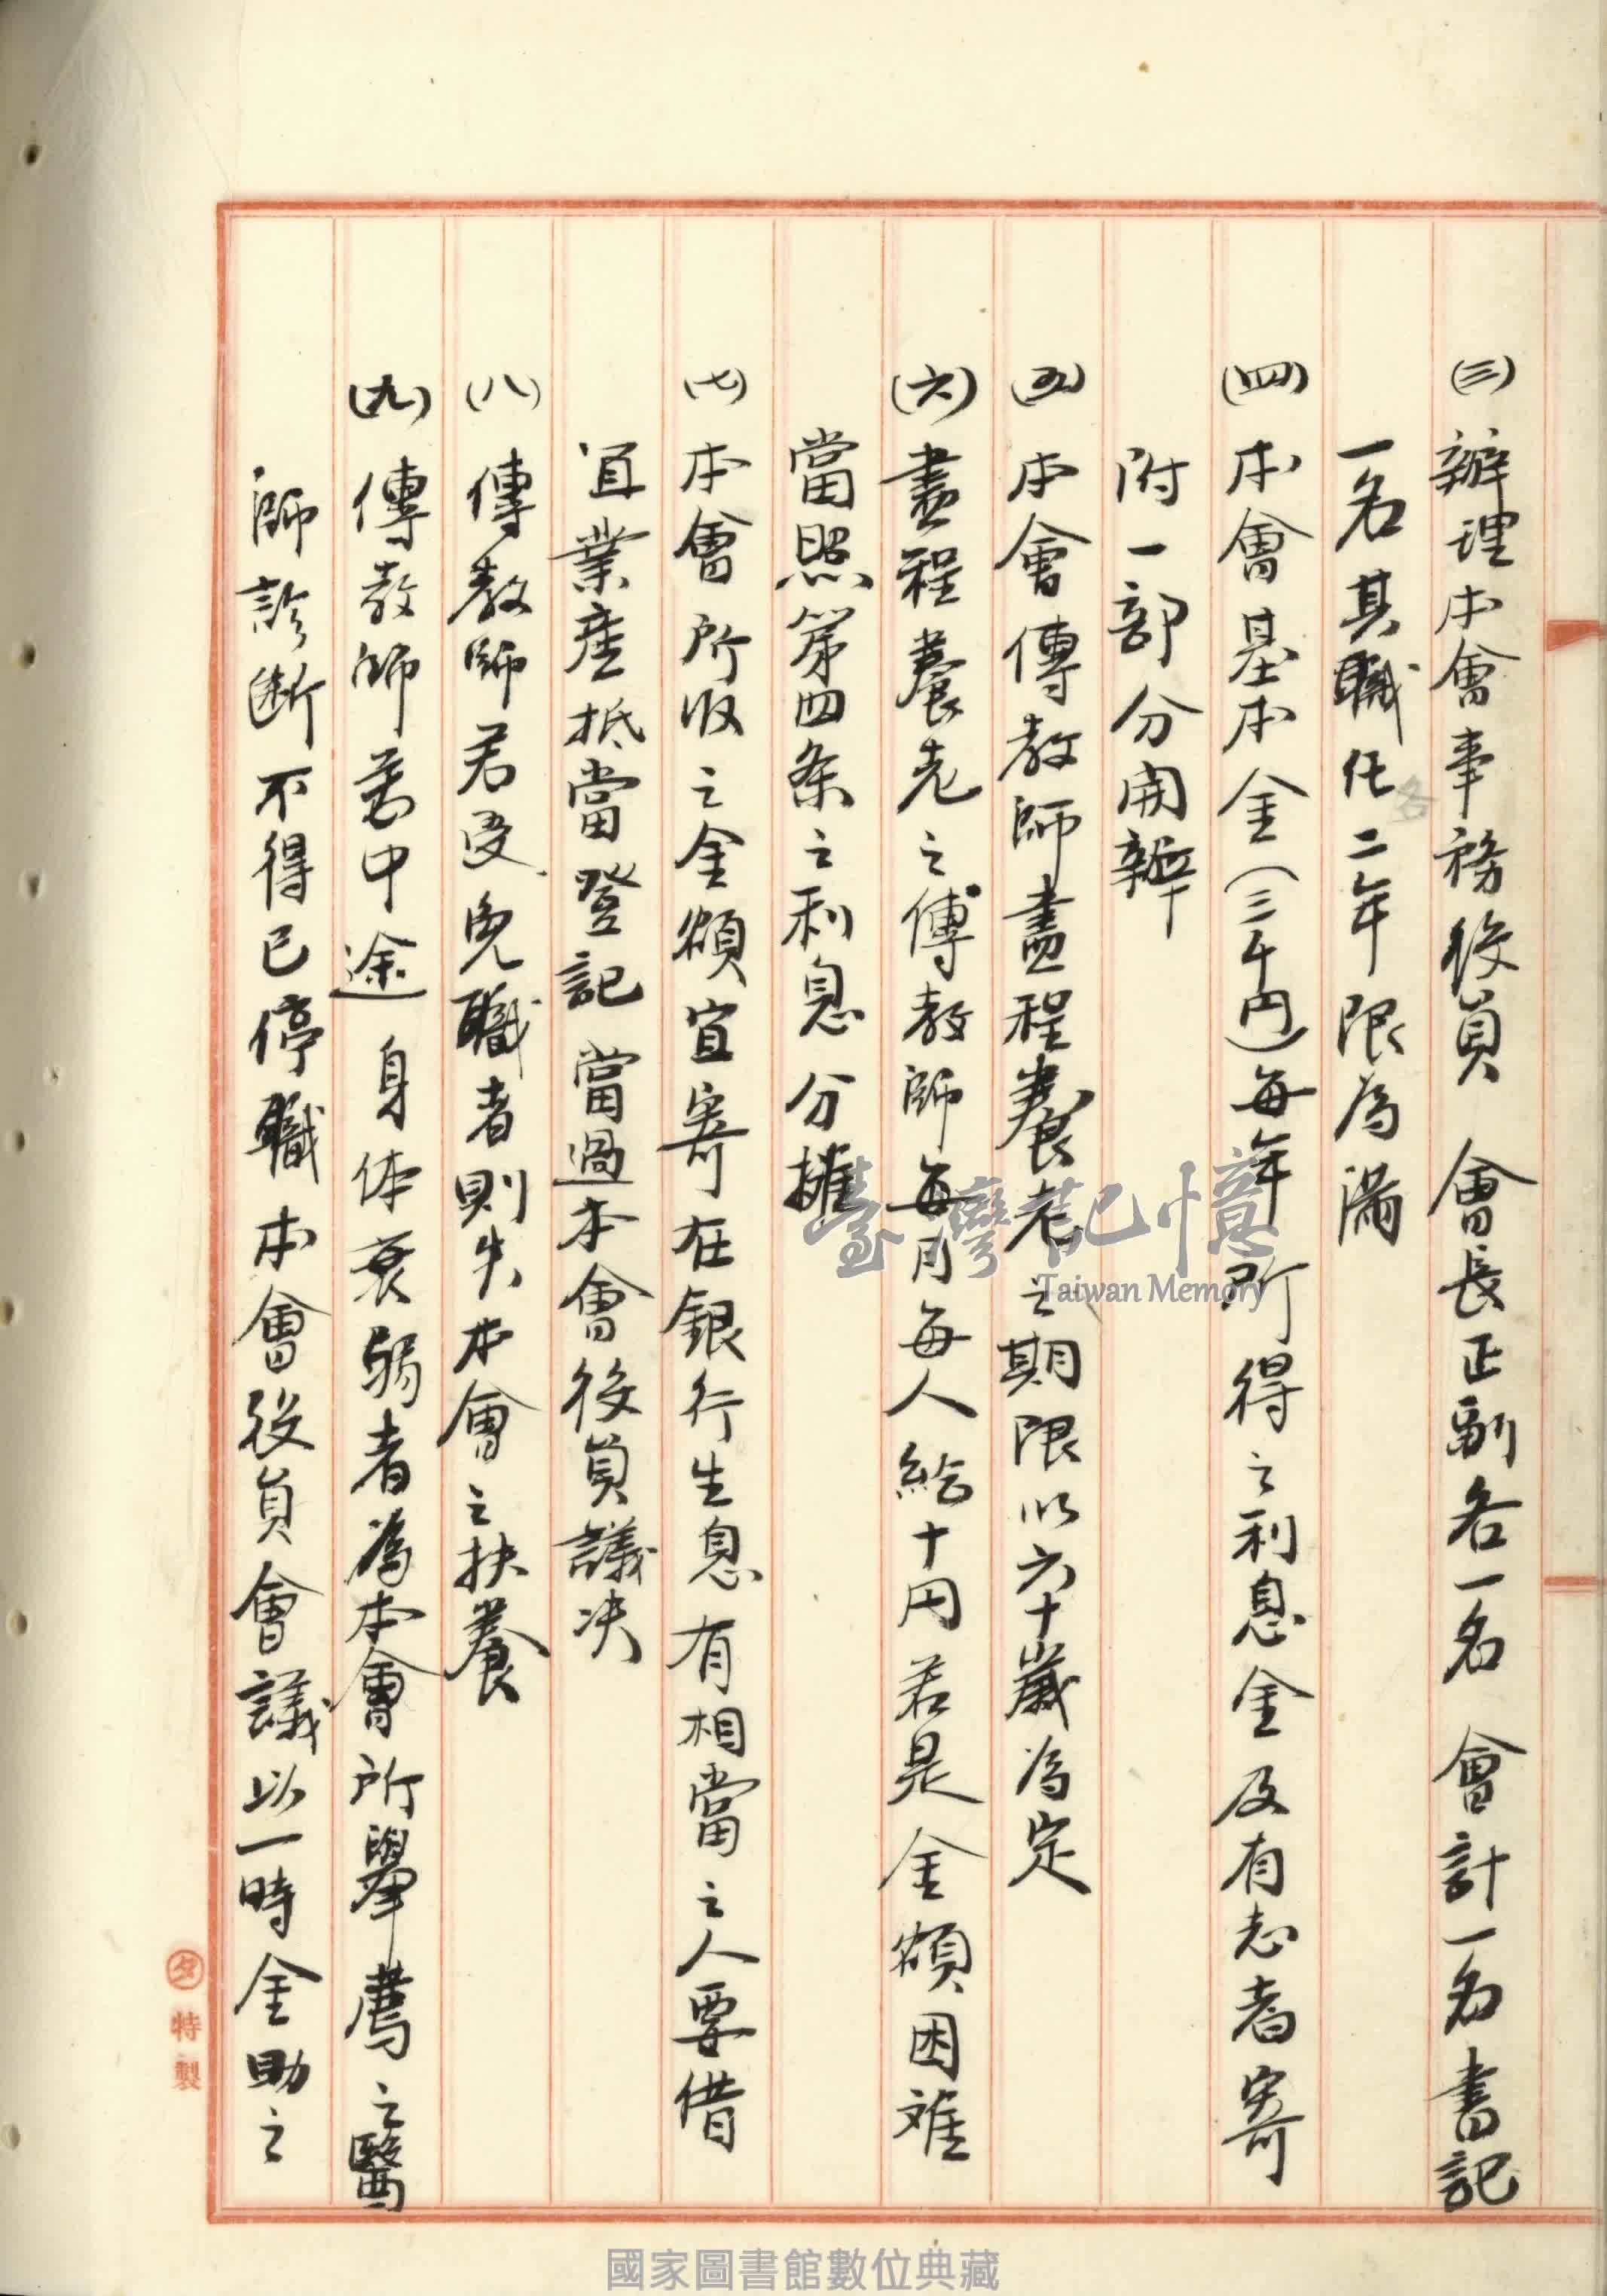 ㈢辦理本會事務役員 會長正副各一名 會計一名書記
一名其職任二年限為滿
各
㈣本會基本金(三千円)每年所得之利息金及有志者寄
附一部分開辦
㈤本會傳教師盡程養老之期限以六十歲為定
㈥盡程養老之傳教師每月每人給十円若是金額困难
當照第四条之利息分攤
㈦本會所收之金額宜寄在銀行生息有相當之人要借
宜業產抵當登記當過本會役員議决
㈧傳教師若受免職者則失本會之扶養
㈨傳教師若中途身体衰弱者為本會所舉薦之醫
師診断不得已停職本會役員會議以一時金助之
タ特製
臺灣記憶
Taiwan Memory
國家圖書館數位典藏